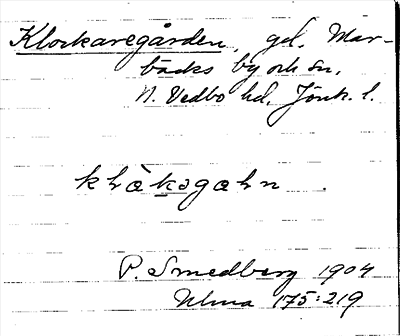 Klockaregården, gd, Mar-
bäcks by och sn,
N. Vedbo hd, Jönk. l.
khàkagahn.
P. Smedberg 1904
Ulma 175:219